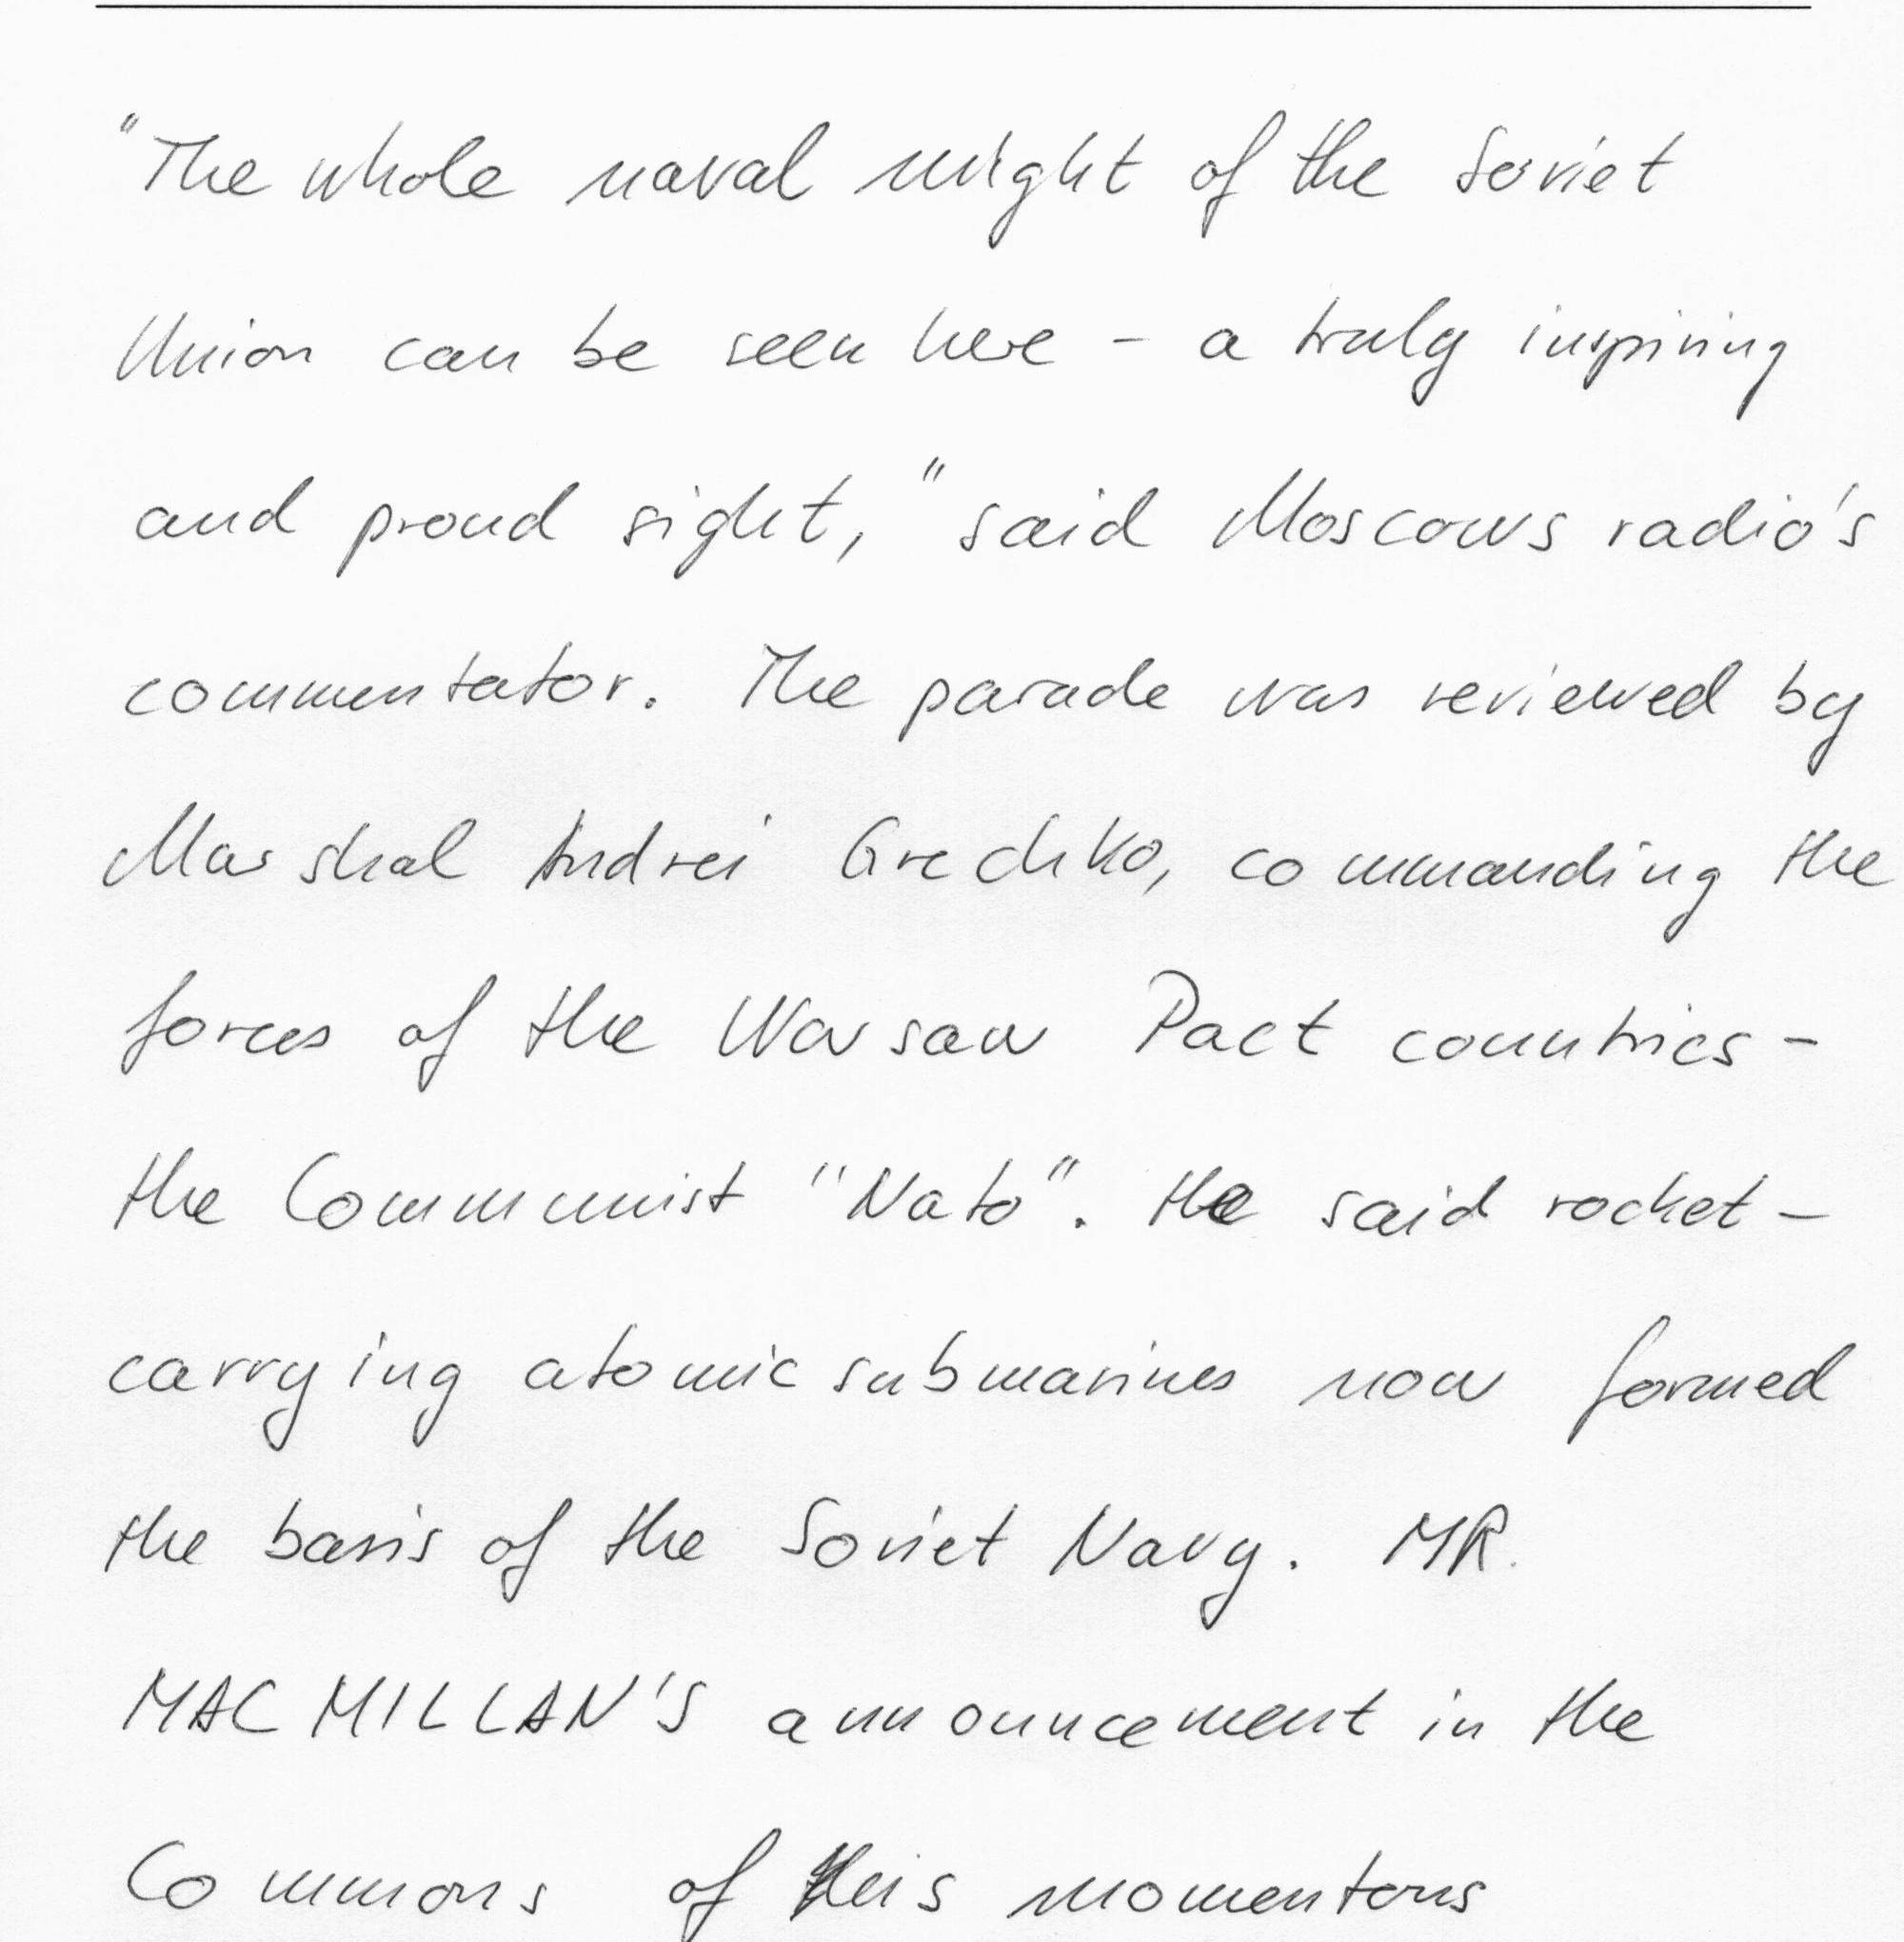 "The whole naval might of the Soviet
Union can be seen here - a truly inspiring
and proud sight," said Moscows radio's
commentator. The parade was reviewed by
Marshal Andrei Grechko, commanding the
forces of the Warsaw Pact countries -
the Communist "Nato". He said rocket -
carrying atomic submarines now formed
the basis of the Soviet Navy. MR.
MACMILLAN'S announcement in the
Commons of this momentous